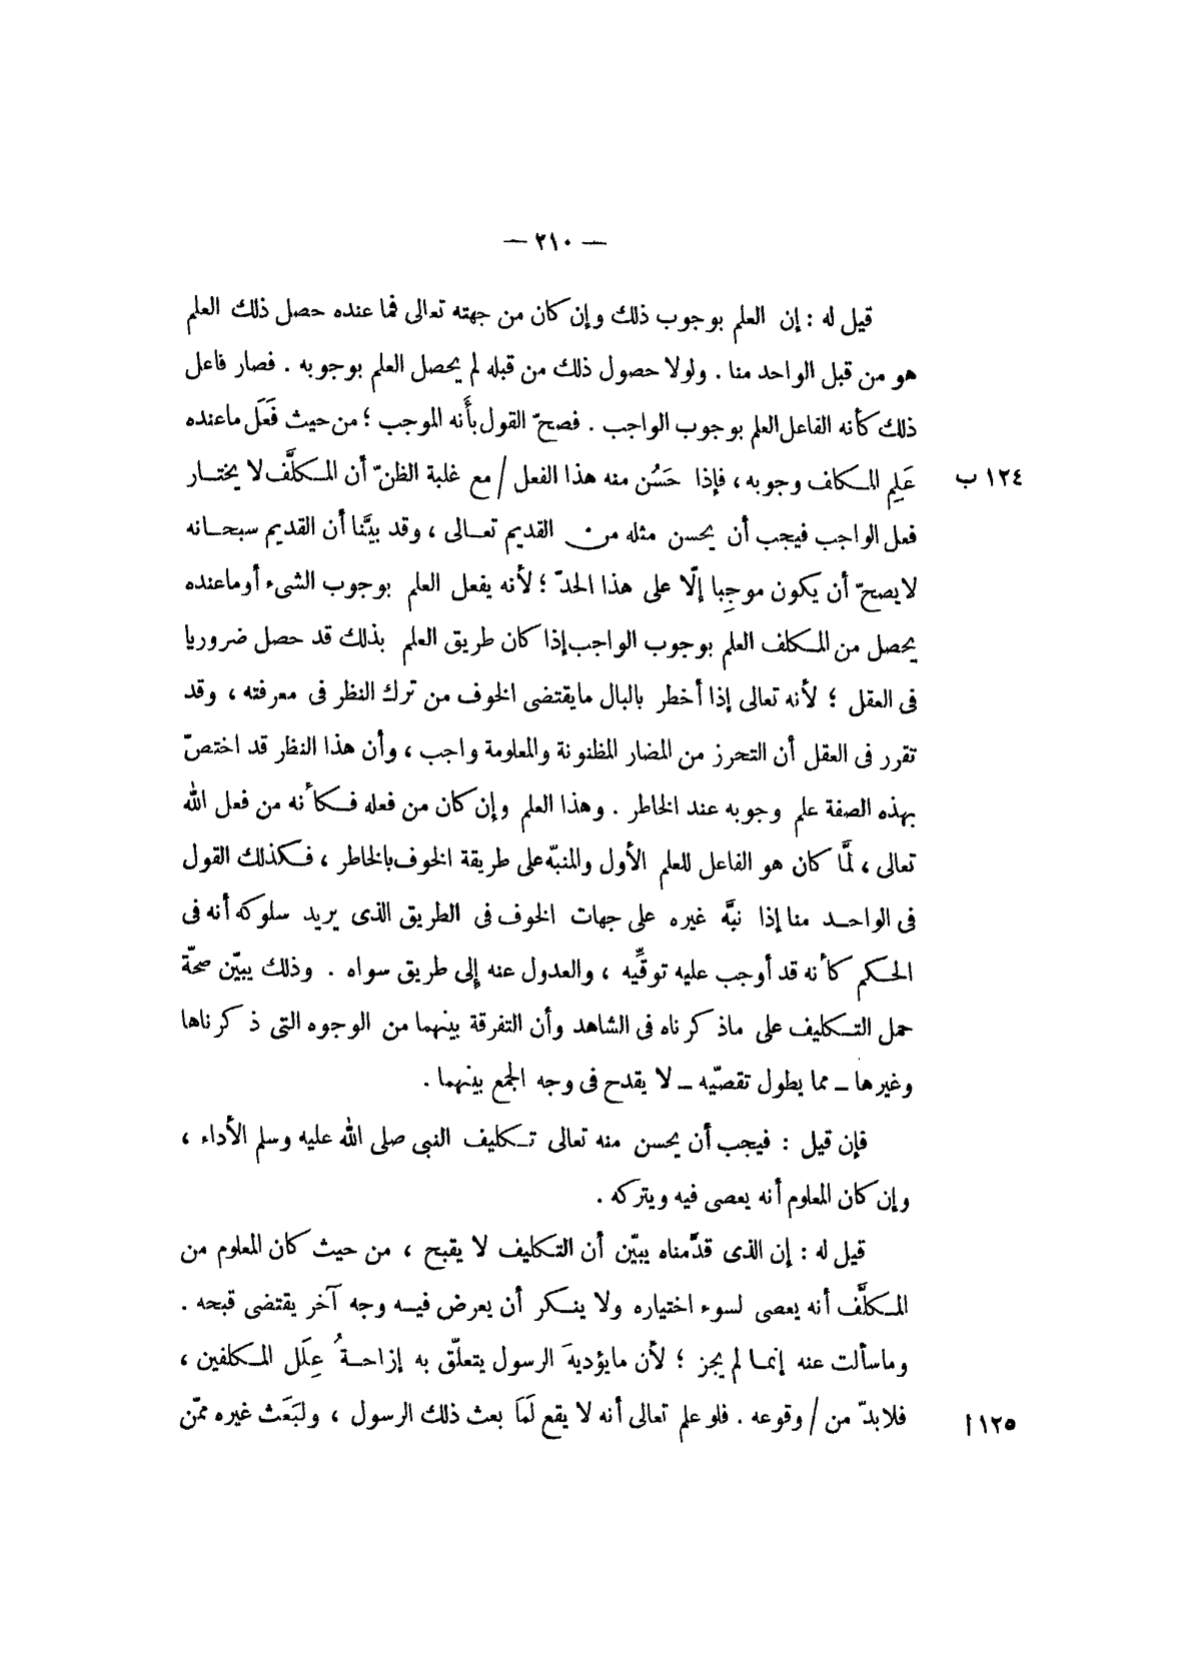 — ٢١٠ —
قيل له : إن العلم بوجوب ذلك وإن كان من جهته تعالى فما عنده حصل ذلك العلم
هو من قبل الواحد منا . ولولا حصول ذلك من قبله لم يحصل العلم بوجوبه . فصار فاعل
ذلك كأنه الفاعل العلم بوجوب الواجب . فصحّ القول بأَنه الموجب ؛ من حيث فَعَل ماعنده
عَلِم المكلف وجوبه ، فإذا حَسُن منه هذا الفعل / مع غلبة الظنّ أن المكلَّف لا يختار ١٢٤ ب
فعل الواجب فيجب أن يحسن مثله من القديم تعالى ، وقد بيَّنا أن القديم سبحانه
لا يصحّ أن يكون موجِبا إلّا على هذا الحدّ ؛ لأنه يفعل العلم بوجوب الشىء أوماعنده
يحصل من المكلف العلم بوجوب الواجب إذا كان طريق العلم بذلك قد حصل ضروريا
فى العقل ؛ لأنه تعالى إذا أخطر بالبال مايقتضى الخوف من ترك النظر فى معرفته ، وقد
تقرر فى العقل أن التحرز من المضار المظنونة والمعلومة واجب ، وأن هذا النظر قد اختصّ
بهذه الصفة علم وجوبه عند الخاطر . وهذا العلم وإن كان من فعله فكأنه من فعل الله
تعالى ، لمَّا كان هو الفاعل للعلم الأول والمنبّه على طريقة الخوف بالخاطر ، فكذلك القول
فى الواحد منا إذا نبَّه غيره على جهات الخوف فى الطريق الذى يريد سلوكه أنه فى
الحكم كأنه قد أوجب عليه توقِّيه ، والعدول عنه إلى طريق سواه . وذلك يبيّن صحّة
حمل التكليف على ماذكرناه فى الشاهد وأن التفرقة بينهما من الوجوه التى ذكرناها
وغيرها ــ مما يطول تقصّيه ــ لا يقدح فى وجه الجمع بينهما .
فإن قيل : فيجب أن يحسن منه تعالى تكليف النبى صلى الله عليه وسلم الأداء ،
وإن كان المعلوم أنه يعصى فيه ويتركه .
قيل له : إن الذى قدَّمناه يبيّن أن التكليف لا يقبح ، من حيث كان المعلوم من
المكلَّف أنه يعصى لسوء اختياره ولا ينكر أن يعرض فيه وجه آخر يقتضى قبحه .
وماسألت عنه إنما لم يجز ؛ لأن مايؤديهَ الرسول يتعلّق به إزاحةُ عِلَل المكلفين ،
فلابدّ من / وقوعه . فلو علم تعالى أنه لا يقع لَمَا بعث ذلك الرسول ، ولبَعَث غيره ممّن ١٢٥ ا